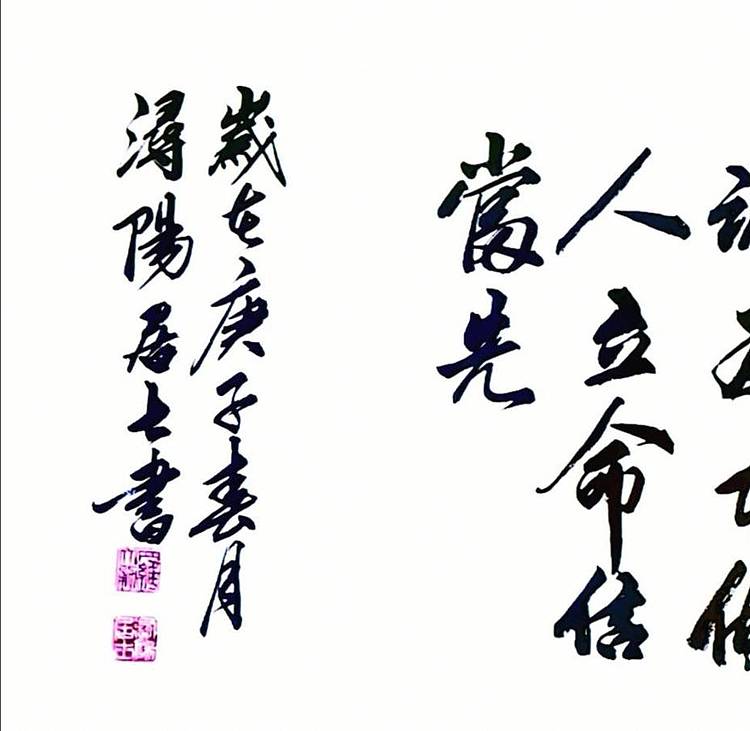 人立命信
當先
歲在庚子春月
潯陽居士書